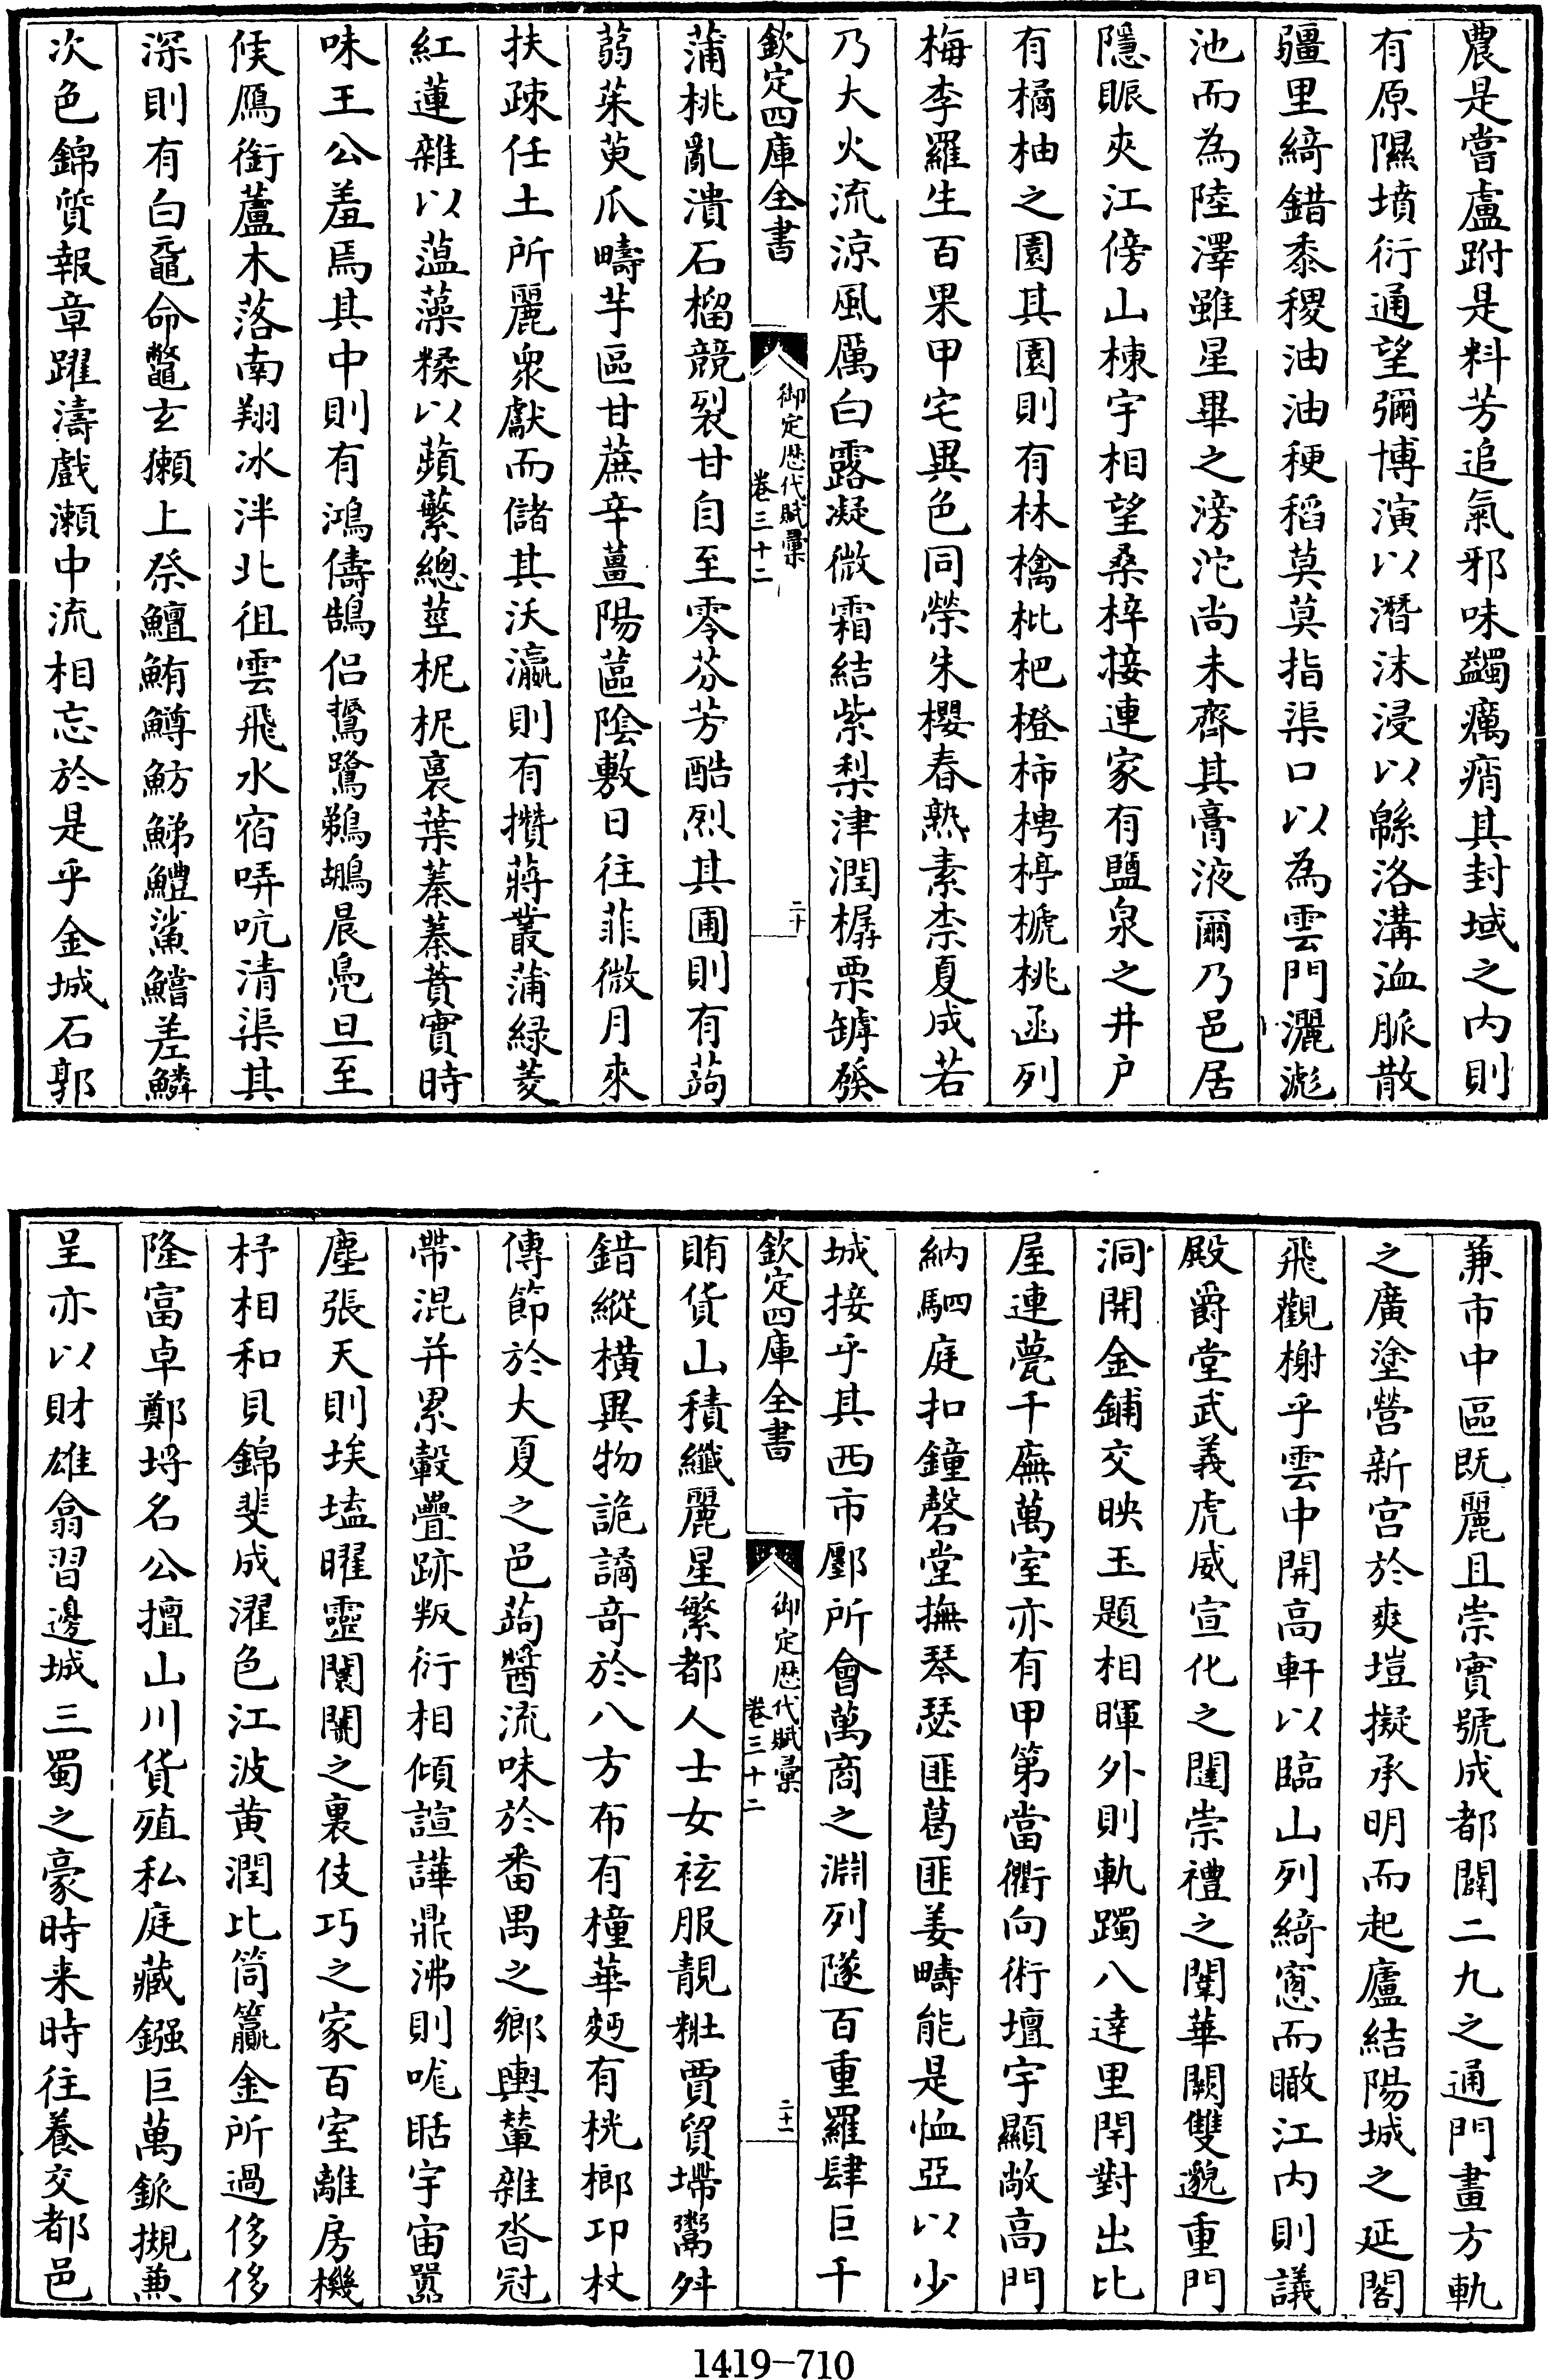 農是嘗盧跗是料芳追氣邪味蠲癘痟其封域之內則
有原隰墳衍通望彌博演以潛沫浸以緜洛溝洫脈散
疆里綺錯黍稷油油稉稻莫莫指渠口以為雲門灑滮
池而為陸澤雖星畢之滂沱尚未齊其膏液爾乃邑居
隱賑夾江傍山棟宇相望桑梓接連家有鹽泉之井户
有橘柚之園其園則有林檎枇杷橙柿梬楟榹桃函列
梅李羅生百果甲宅異色同榮朱櫻春熟素柰夏成若
乃大火流涼風厲白露凝微霜結紫梨津潤樼栗罅發
欽定四庫全書
御定歴代賦彙
卷三十二
二十
蒲桃亂潰石榴競裂甘自至零芬芳酷烈其圃則有蒟
蒻茱萸瓜疇芋區甘蔗辛薑陽蓲陰敷日往菲微月來
扶疎任土所麗衆獻而儲其沃瀛則有攢蔣叢蒲緑菱
紅蓮雜以薀藻糅以蘋蘩總莖柅柅裛葉蓁蓁蕡實時
味王公羞焉其中則有鴻儔鵠侣鴛鷺鵜鶘晨鳧旦至
候鴈銜蘆木落南翔冰泮北徂雲飛水宿哢吭清渠其
深則有白黿命鼈玄獺上祭鱣鮪鱒魴鮷鱧鯊鱨差鱗
次色錦質報章躍濤戲瀨中流相忘於是乎金城石郭
兼市中區既麗且崇實號成都闢二九之通門畫方軌
之廣塗營新宫於爽塏擬承明而起廬結陽城之延閣
飛觀榭乎雲中開高軒以臨山列綺窻而瞰江内則議
殿爵堂武義虎威宣化之闥崇禮之闈華闕雙邈重門
洞開金鋪交映玉題相暉外則軌躅八達里閈對出比
屋連甍千廡萬室亦有甲第當衢向術壇宇顯敞高門
納駟庭扣鐘磬堂撫琴瑟匪葛匪姜疇能是恤亞以少
城接乎其西市廛所會萬商之淵列隧百重羅肆巨千
欽定四庫全書
御定歴代賦彙
卷三十二
二十一
賄貨山積纖麗星繁都人士女袨服靚粧賈貿墆鬻舛
錯縱橫異物詭譎奇於八方布有橦華麪有桄榔卭杖
傳節於大夏之邑蒟醬流味於番禺之鄉輿輦雜沓冠
帶混并累轂疊跡叛衍相傾諠譁鼎沸則哤聒宇宙嚣
塵張天則埃壒曜靈闤闠之裏伎巧之家百室離房機
杼相和貝錦斐成濯色江波黄潤比筒籯金所過侈侈
隆富卓鄭埒名公擅山川貨殖私庭藏鏹巨萬鈲摫兼
呈亦以財雄翕習邊城三蜀之豪時来時往養交都邑
1419-710